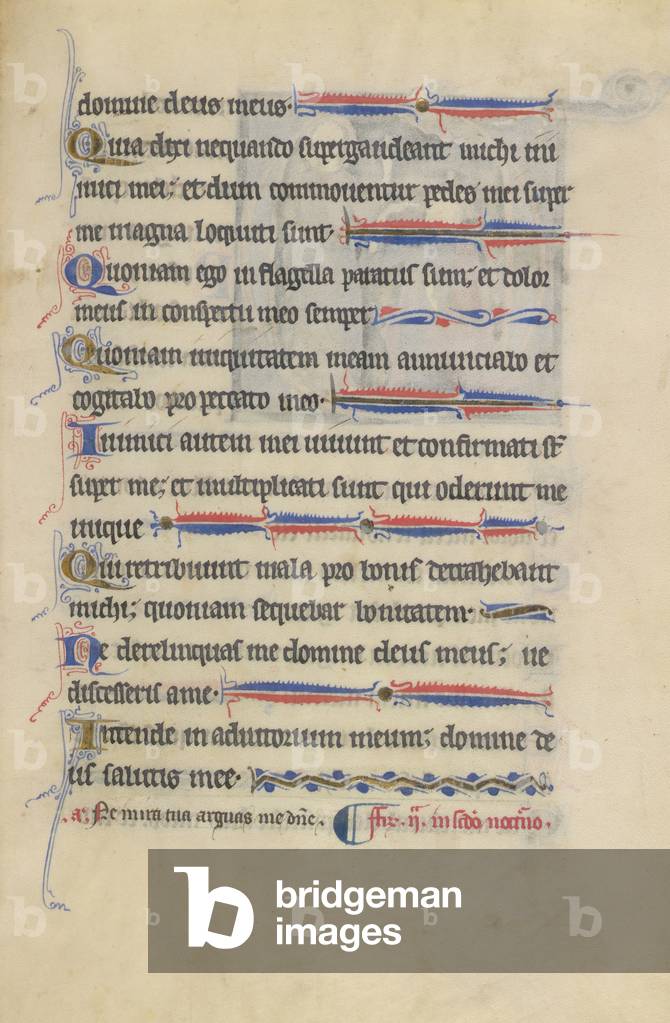 domine deus meus·
Quia dixi nequando supergaudeant michi ini
mici mei; et dum commouentur pedes mei super
me magna loquuti sunt·
Quoniam ego in flagella paratus sum; et dolor
meus in conspectu meo semper
Quoniam iniquitatem meam annunciabo et
cogitabo pro peccato meo·
Inimici autem mei uiuunt et confirmati st̄
super me; et multiplicati sunt qui oderunt me
inique
Qui retribuunt mala pro bonis detrahebant
michi; quoniam sequebar bonitatem·
Ne derelinquas me domine deus meus; ne
discesseris a me·
Intende in adiutorium meum; domine de
us salutis mee·
.a. Ne in ira tua arguas me dn̄e. fr̄. ij. in sc̄do noct̄no.
bridgeman
images